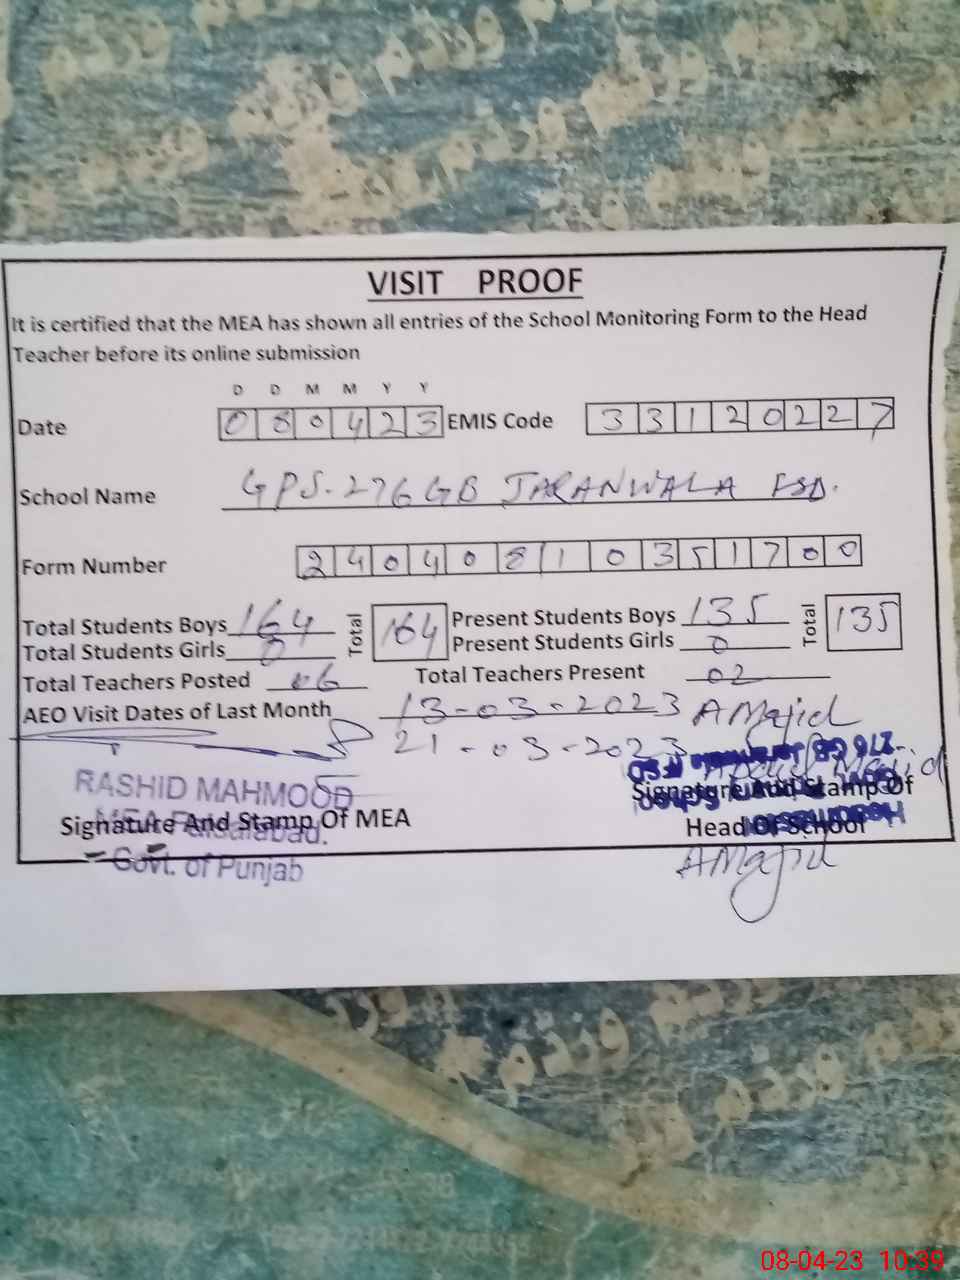 VISIT PROOF
It is certified that the MEA has shown all entries of the School Monitoring Form to the Head
Teacher before its online submission
D D M M Y Y
Date 080423 EMIS Code 33120227
School Name GPS. 276 GB JARANWALA FSD.
Form Number 24040810351700
Total Students Boys 164 Total 164 Present Students Boys 135 Total 135
Total Students Girls 0 Present Students Girls 0
Total Teachers Posted 06 Total Teachers Present 02
AEO Visit Dates of Last Month 13-03-2023 A Majid
21-03-2023
276 GB
RASHID MAHMOOD
MEA Faisalabad.
Govt. of Punjab
Signature And Stamp Of MEA
Signature And Stamp Of
Head Of School
A Majid
08-04-23 10:39